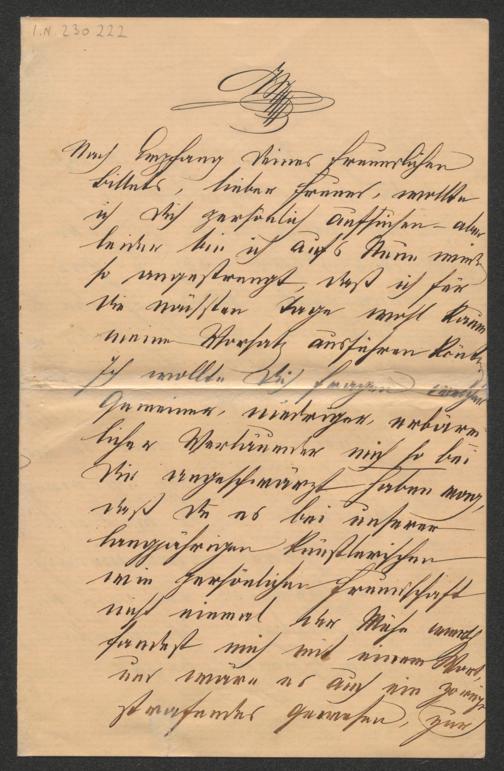 I.N. 230 222
Nach Empfang Deines freundlichen
Billets, lieber Freund, wollte
ich Dich persönlich aufsuchen – aber
leider bin ich aufs Neue
so angestrengt, daß ich für
die nächsten Tage wohl kaum
meine Vorsatz ausführen
Ich wollte Dich fragen welcher
Gemeiner, niedriger, erbärm
licher Verläumder mich so bei
Dir angeschwärzt haben mag,
daß Du es bei unserer
langjährigen künstlerischen
wie persönlichen Freundschaft
nicht einmal der Mühe werth
fandest mich mit einem Wort,
und wäre es auch ein
strafendes gewesen, zur